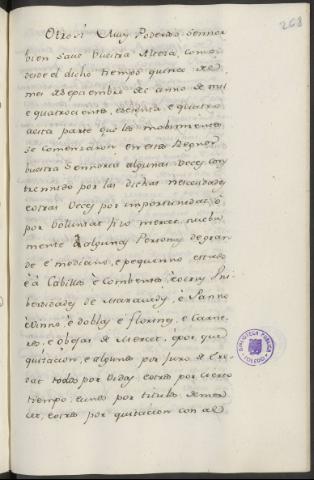 268
Otrosi Muy Poderoso Sennor
bien save vuestra Alteza, como
desde el dicho tiempo quince de
mes de Septiembre de anno de mil
e quatrocientos, sesenta e quatro
acita parte que los mobimientos
se comenzaron en estos Regnos
vuestra Sennoria algunas veces cons
trennido por las dichas necesidades
e otras veces por importunidat, o
por voluntat fizo merced nueba
mente à algunas Personas de gran
de é mediano, e pequenno estado
è à Cabildos è Combentos, è otras Uni
bersidades de Maravedis, è Panno
è vinno, è doblas e florines, e Carne
ros, e obejas de Merced, é por que
quitacion, e algunos por Juro de Ere
dat todos por vidas, e otros por cierto
tiempo, e unos por titulos de mer
ced, e otros por quitacion con al
BIBLIOTECA PUBLICA
TOLEDO